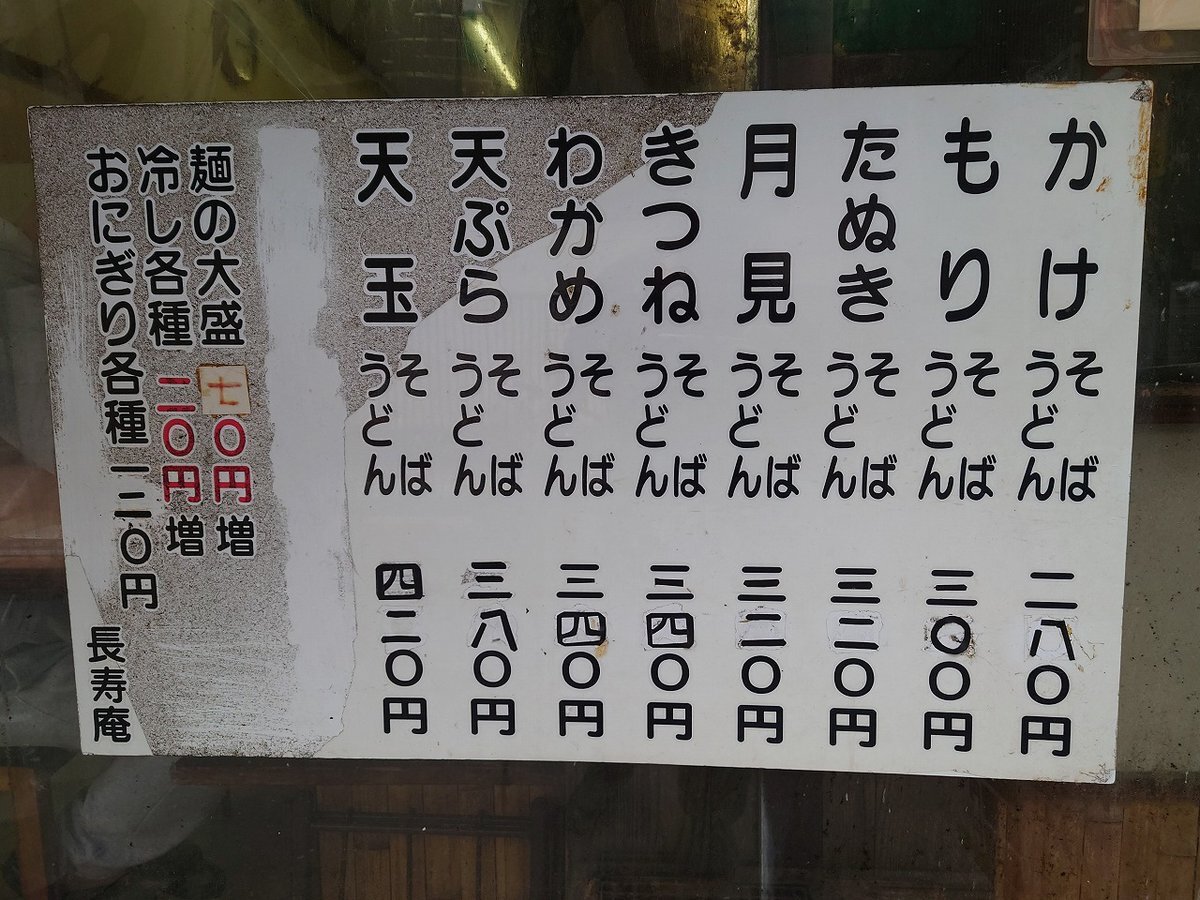 かけ そば うどん 二八〇円
もり そば うどん 三〇〇円
たぬき そば うどん 三二〇円
月見 そば うどん 三二〇円
きつね そば うどん 三四〇円
わかめ そば うどん 三四〇円
天ぷら そば うどん 三八〇円
天玉 そば うどん 四二〇円
麺の大盛 七〇円増
冷し各種 二〇円増
おにぎり各種 一二〇円
長寿庵